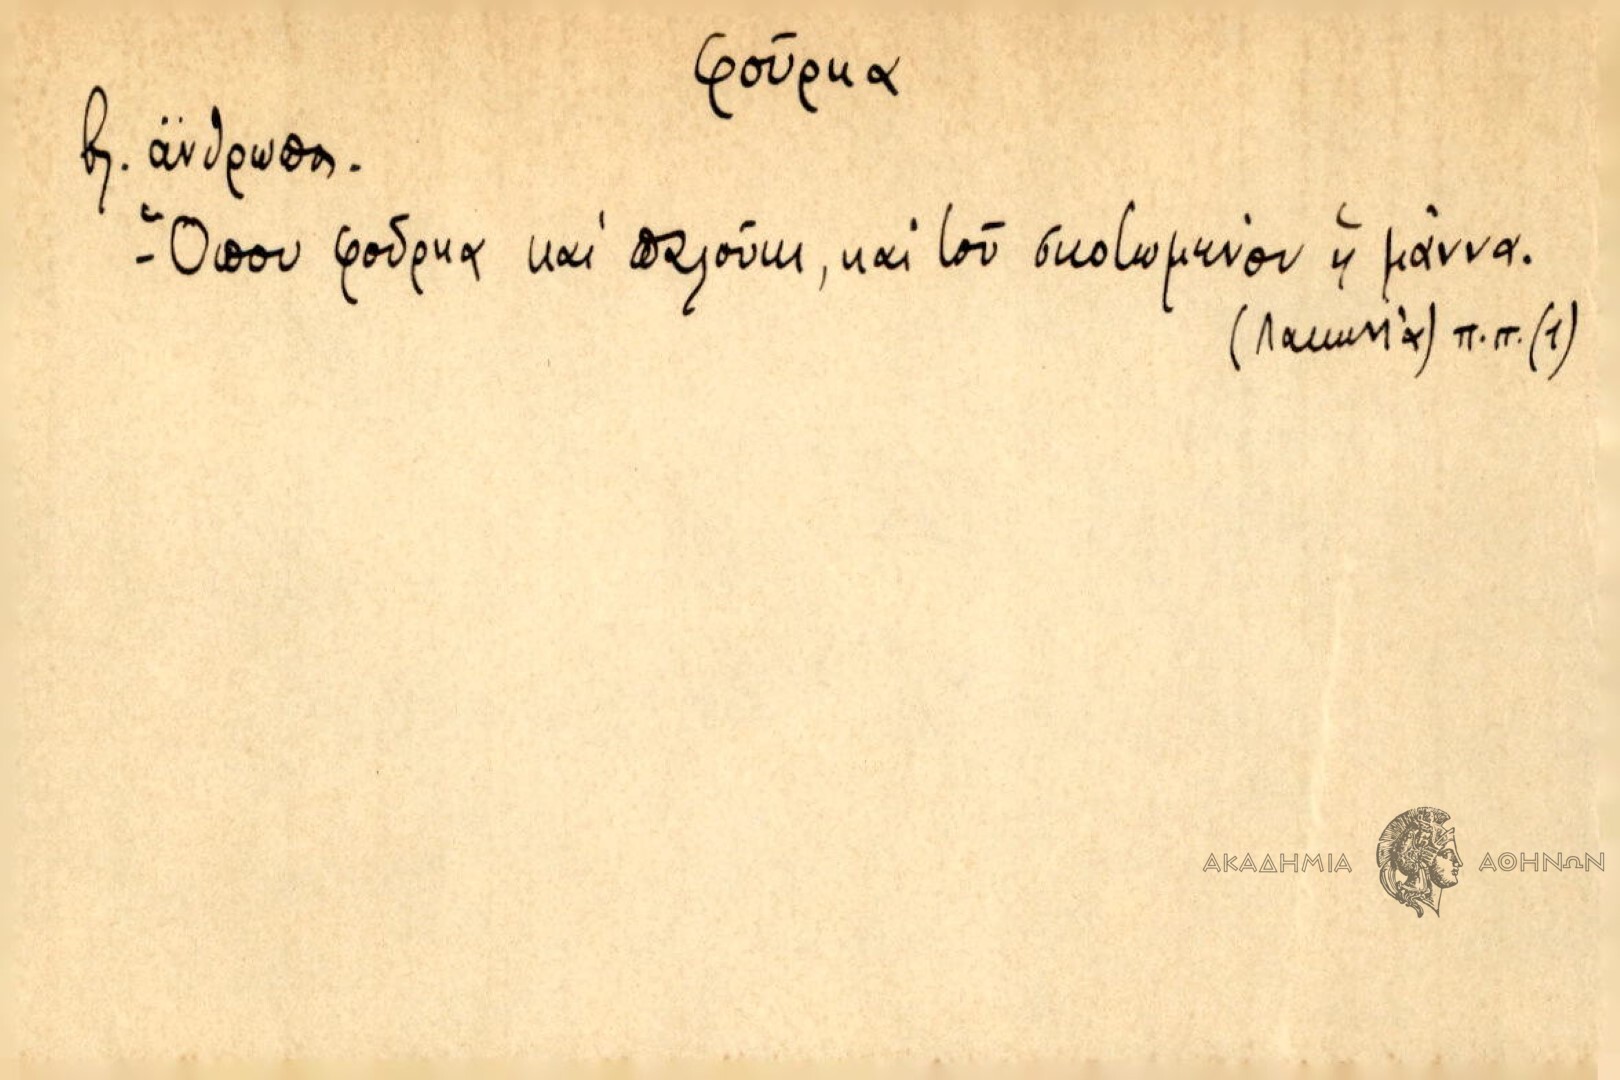 φοῦρκα
βλ. ἄνθρωπος.
- Ὅπου φοῦρκα καὶ παλούκι, καὶ τοῦ σκοτωμένου ἡ μάννα.
(Λακωνία) π.π. (1)
ΑΚΑΔΗΜΙΑ ΑΘΗΝΩΝ